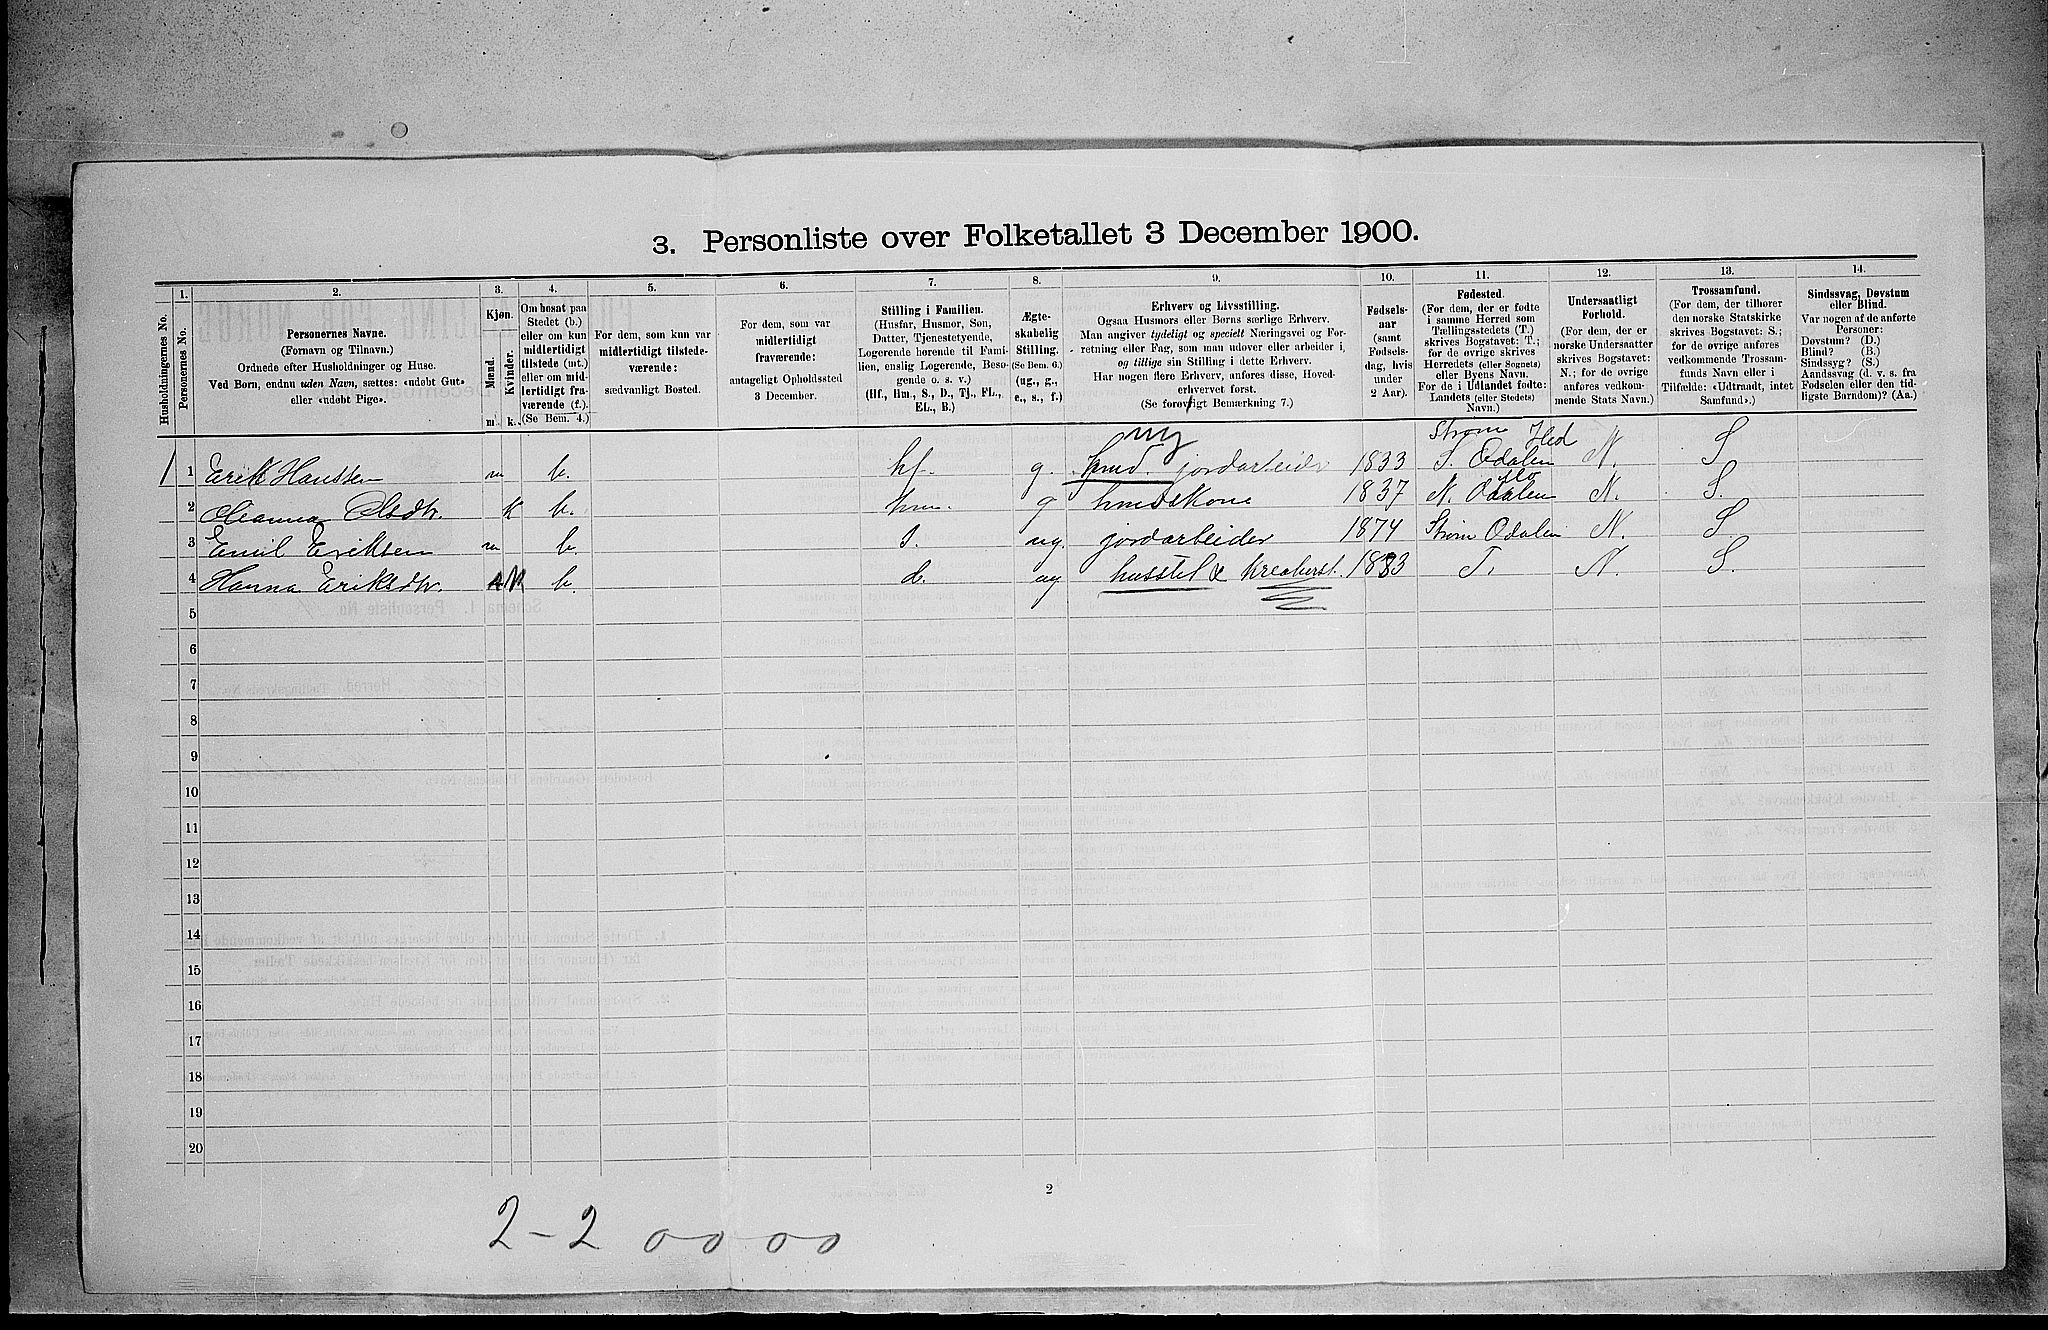 3. Personliste over Folketallet 3 December 1900.
1. 2. 3. 4. 5. 6. 7. 8. 9. 10. 11. 12. 13. 14.
Husholdningernes No.
Personernes No.
Personernes Navne.
(Fornavn og Tilnavn.)
Ordnede efter Husholdninger og Huse.
Ved Børn, endnu uden Navn, sættes: «udøbt Gut»
eller «udøbt Pige».
Kjøn.
Mænd.
Kvinder.
m. k.
Om bosat paa
Stedet (b.)
eller om kun
midlertidigt
tilstede (mt.)
eller om mid-
lertidigt fra-
værende (f.).
(Se Bem. 4.)
For dem, som kun var
midlertidigt tilstede-
værende:
sædvanligt Bosted.
For dem, som var
midlertidigt
fraværende:
antageligt Opholdssted
3 December.
Stilling i Familien.
(Husfar, Husmor, Søn,
Datter, Tjenestetyende,
Logerende hørende til Fami-
lien, enslig Logerende, Besø-
gende o. s. v.)
(Hf., Hm., S., D., Tj., FL.,
EL., B.)
Ægte-
skabelig
Stilling.
(Se Bem. 6.)
(ug., g.,
e., s., f.)
Erhverv og Livsstilling.
Ogsaa Husmors eller Børns særlige Erhverv.
Man angiver tydeligt og specielt Næringsvei og For-
retning eller Fag, som man udover eller arbeider i,
og tillige sin Stilling i dette Erhverv.
Har nogen flere Erhverv, anføres disse, Hoved-
erhvervet først.
(Se forøvrigt Bemærkning 7.)
Fødsels-
aar
(samt
Fødsels-
dag, hvis
under
2 Aar).
Fødested.
(For dem, der er fødte
i samme Herred som
Tællingsstedets (T.)
skrives Bogstavet: T.;
for de øvrige skrives
Herredets (eller Sognets)
eller Byens Navn.
For de i Udlandet fødte:
Landets (eller Stedets)
Navn.)
Undersaatligt
Forhold.
(For dem, der er
norske Undersaatter
skrives Bogstavet:
N.; for de øvrige
anføres vedkom-
mende Stats Navn.)
Trossamfund.
(For dem, der tilhører
den norske Statskirke
skrives Bogstavet: S.;
for de øvrige anføres
vedkommende Trossam-
funds Navn eller i
Tilfælde: «Udtraadt, intet
Samfund».)
Sindssvag, Døvstum
eller Blind.
Var nogen af de anførte
Personer:
Døvstum? (D.)
Blind? (B.)
Sindssyg? (S.)
Aandssvag (d. v. s. fra
Fødselen eller den tid-
ligste Barndom)? (Aa.)
1 1 Erik Hanssen m b. hf. g. hmd. jordarbeider 1833 Strøm S. Odalen Hed N. S
2 Oleanna Olsdtr. k b. hm. g hmdskone 1837 N. Odalen N. S.
3 Emil Eriksen m b. s. ug. jordarbeider 1874 Strøm Odalen N. S.
4 Hanna Eriksdtr. k b. d. ug husstel & kreaturst. 1883 T. N. S.
5
6
7
8
9
10
11
12
13
14
15
16
17
18
19
20
2
2-2 00 00